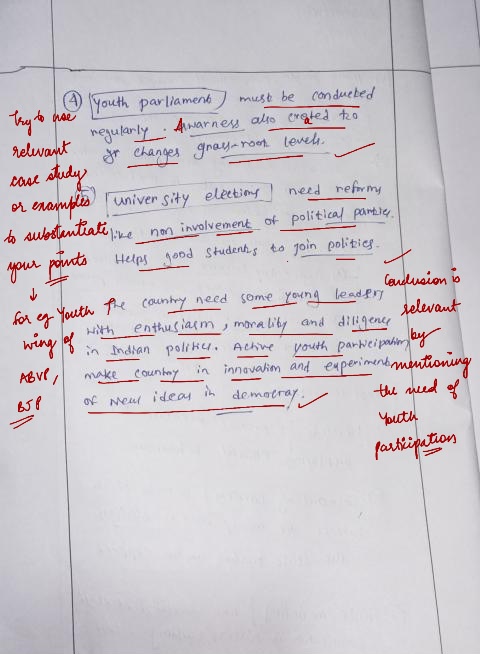 4 Youth parliament must be conducted
regularly. Awarness also created to
gr changes grass-root levels.
university elections need reforms
like non involvement of political parties.
Helps good students to join politics.
The country need some young leaders
with enthusiasm, morality and diligence
in Indian politics. Active youth participation
make country in innovation and experiment
of new ideas in democray.
Try to use
relevant
case study
or examples
to substantiate
your points
↓
for eg Youth
wing of
ABVP,
BJP
Conclusion is
relevant
by
mentioning
the need of
Youth
participation